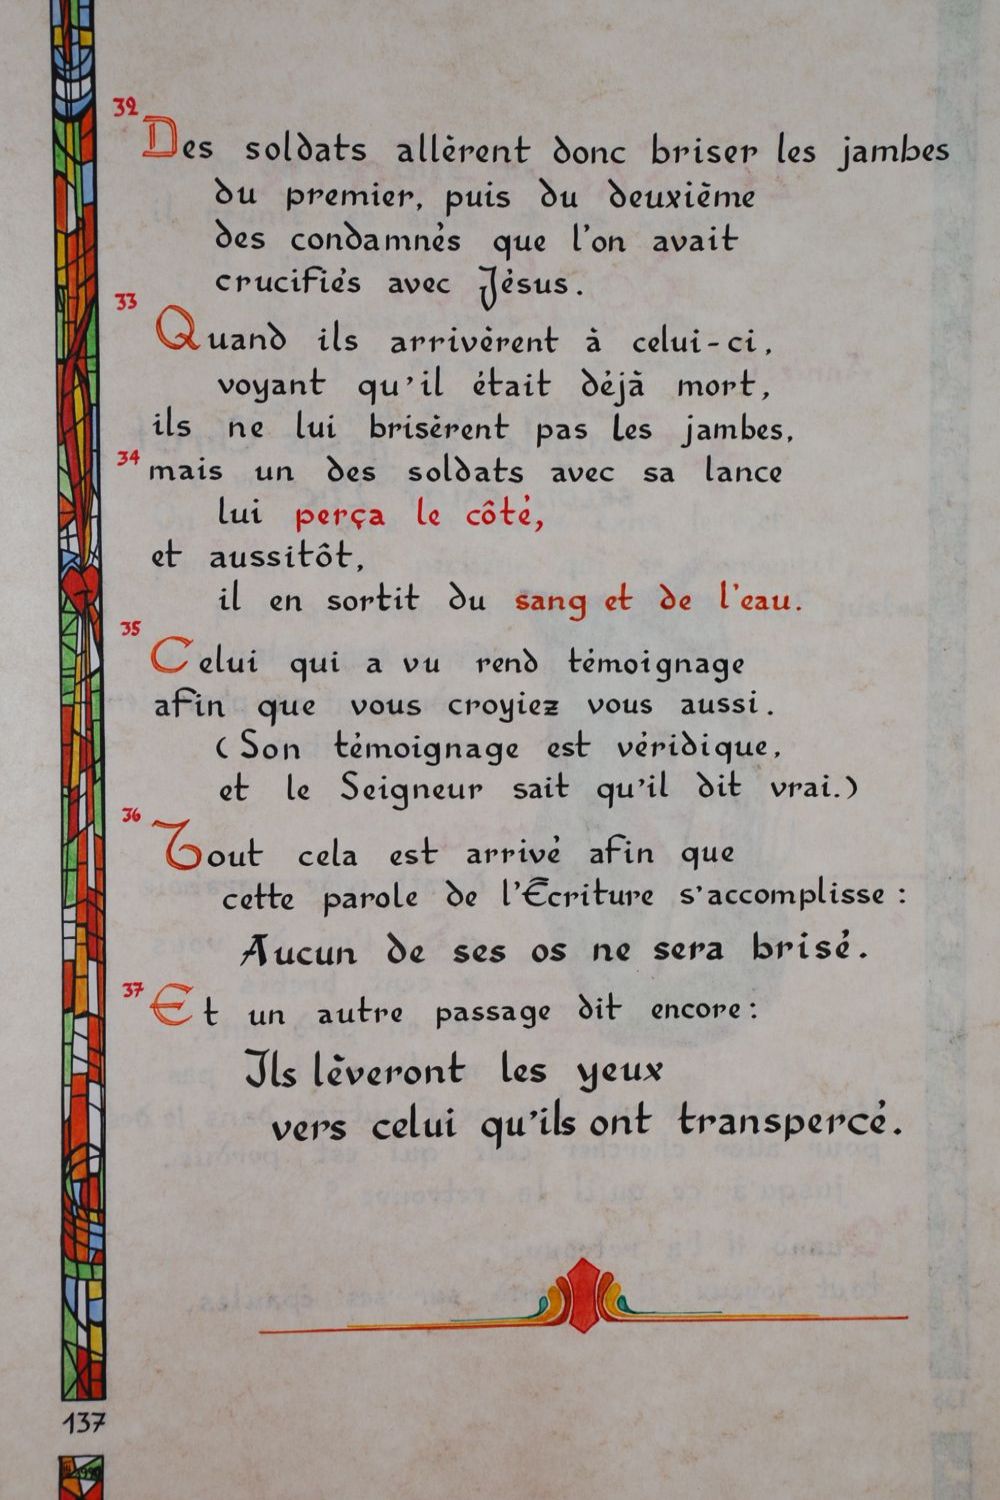 32
Des soldats allèrent donc briser les jambes
du premier, puis du deuxième
des condamnés que l'on avait
crucifiés avec Jésus.
33
Quand ils arrivèrent à celui-ci,
voyant qu'il était déjà mort,
ils ne lui brisèrent pas les jambes,
34 mais un des soldats avec sa lance
lui perça le côté,
et aussitôt,
il en sortit du sang et de l'eau.
35
Celui qui a vu rend témoignage
afin que vous croyiez vous aussi.
(Son témoignage est véridique,
et le Seigneur sait qu'il dit vrai.)
36
Tout cela est arrivé afin que
cette parole de l'Écriture s'accomplisse :
Aucun de ses os ne sera brisé.
37
Et un autre passage dit encore :
Ils lèveront les yeux
vers celui qu'ils ont transpercé.
137